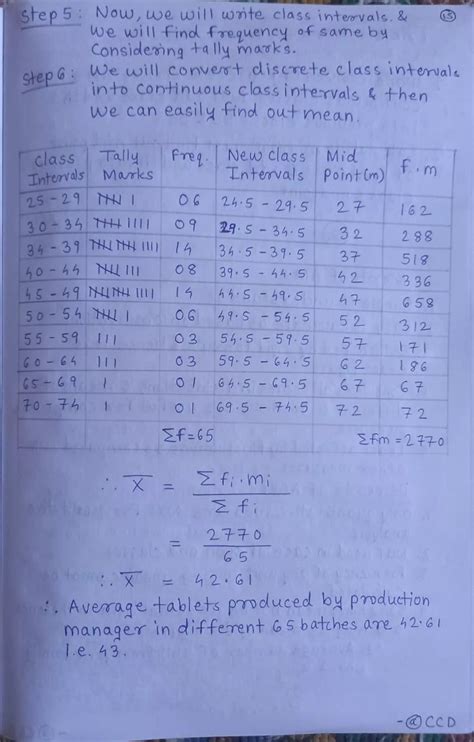 13
Step 5: Now, we will write class intervals. &
We will find frequency of same by
Considering tally marks.
Step 6: We will convert discrete class intervals
into continuous class intervals & then
We can easily find out mean.
Class Intervals | Tally Marks | Freq. | New Class Intervals | Mid Point (m) | f.m
25 - 29 | 𝍸 I | 06 | 24.5 - 29.5 | 27 | 162
30 - 34 | 𝍸 IIII | 09 | 29.5 - 34.5 | 32 | 288
34 - 39 | 𝍸 𝍸 IIII | 14 | 34.5 - 39.5 | 37 | 518
40 - 44 | 𝍸 III | 08 | 39.5 - 44.5 | 42 | 336
45 - 49 | 𝍸 𝍸 IIII | 14 | 44.5 - 49.5 | 47 | 658
50 - 54 | 𝍸 I | 06 | 49.5 - 54.5 | 52 | 312
55 - 59 | III | 03 | 54.5 - 59.5 | 57 | 171
60 - 64 | III | 03 | 59.5 - 64.5 | 62 | 186
65 - 69 | I | 01 | 64.5 - 69.5 | 67 | 67
70 - 74 | I | 01 | 69.5 - 74.5 | 72 | 72
Σf = 65 Σfm = 2770
∴ X̄ = Σ fi . mi / Σ fi
= 2770 / 65
∴ X̄ = 42.61
∴ Average tablets produced by production
manager in different 65 batches are 42.61
I.e. 43.
- @CCD